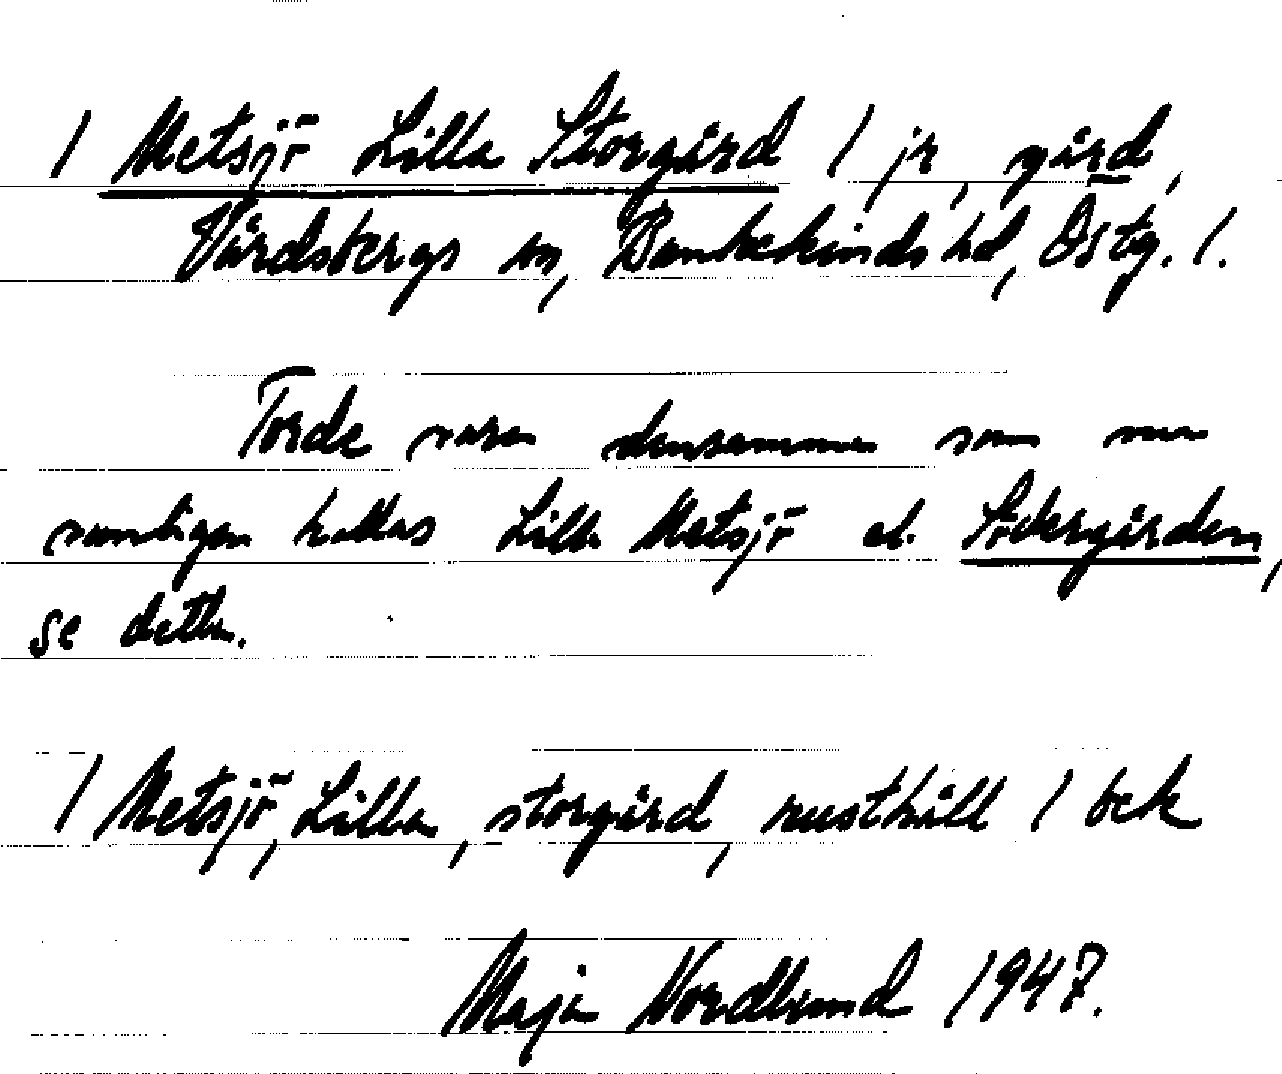 / Metsjö Lilla Storgård / jr, gård,
Vårdsbergs sn, Bankekinds hd, Östg. /.
Torde vara densamma som nu
vanligen kallas Lilla Metsjö el. Södergården,
se detta.
/ Metsjö, Lilla, storgård, rusthåll / bek
Maja Nordlund 1947.